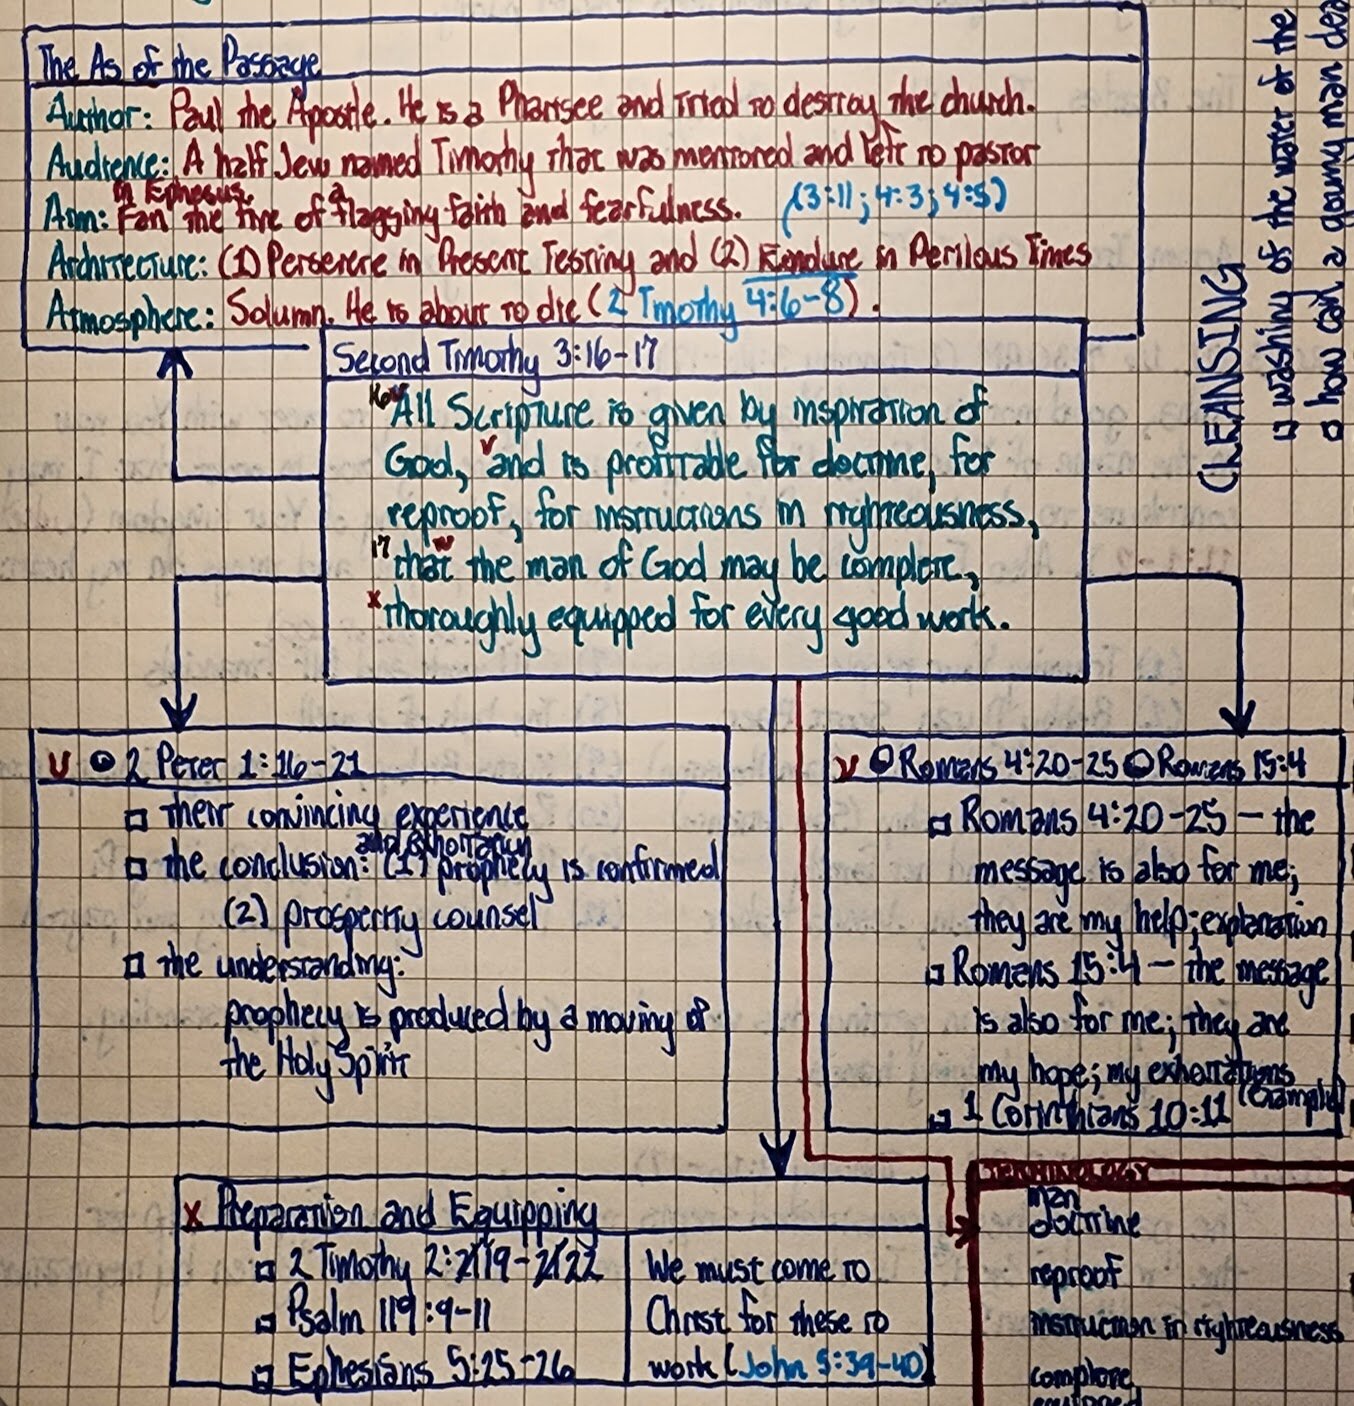 The As of the Passage
Author: Paul the Apostle. He is a Pharisee and Tried to destroy the church.
Audience: A half Jew named Timothy that was mentored and left to pastor
in Ephesus.
Aim: Fan the fire of a flagging faith and fearfulness. (3:11; 4:3; 4:5)
Architecture: (1) Persevere in Present Testing and (2) Endure in Perilous Times
Atmosphere: Solumn. He is about to die (2 Timothy 4:6-8).
Second Timothy 3:16-17
16 All Scripture is given by inspiration of
God, v and is profitable for doctrine, for
reproof, for instructions in righteousness,
17 that the man of God may be complete,
x thoroughly equipped for every good work.
CLEANSING
□ washing of the water of the
□ how can a young man
v 2 Peter 1:16-21
□ their convincing experience
□ the conclusion: (1) prophecy is confirmed
and exhortation
(2) prosperity counsel
□ the understanding:
prophecy is produced by a moving of
the Holy Spirit
v Romans 4:20-25 Romans 15:4
□ Romans 4:20-25 — the
message is also for me;
they are my help; explanation
□ Romans 15:4 — the message
is also for me; they are
my hope; my exhortations
□ 1 Corinthians 10:11 (example)
x Preparation and Equipping
□ 2 Timothy 2:19-22
□ Psalm 119:9-11
□ Ephesians 5:25-26
We must come to
Christ for these to
work (John 5:39-40)
TERMINOLOGY
man
doctrine
reproof
instruction in righteousness
complete
equipped